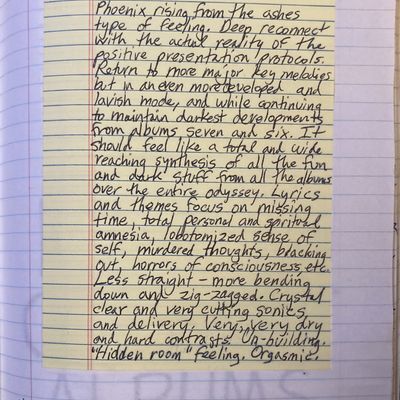 Phoenix rising from the ashes
type of feeling. Deep reconnect
with the actual reality of the
positive presentation protocols.
Return to more major key melodies
but in an even more developed and
lavish mode, and while continuing
to maintain darkest developments
from albums seven and six. It
should feel like a total and wide
reaching synthesis of all the fun
and dark stuff from all the albums
over the entire odyssey. Lyrics
and themes focus on missing
time, total personal and spiritual
amnesia, lobotomized sense of
self, murdered thoughts, blacking
out, horrors of consciousness, etc.
Less straight - more bending
down and zig-zagged. Crystal
clear and very cutting sonics,
and delivery. Very, very dry
and hard contrasts. Un-building.
"Hidden room" feeling. Orgasmic.
ALBUMS